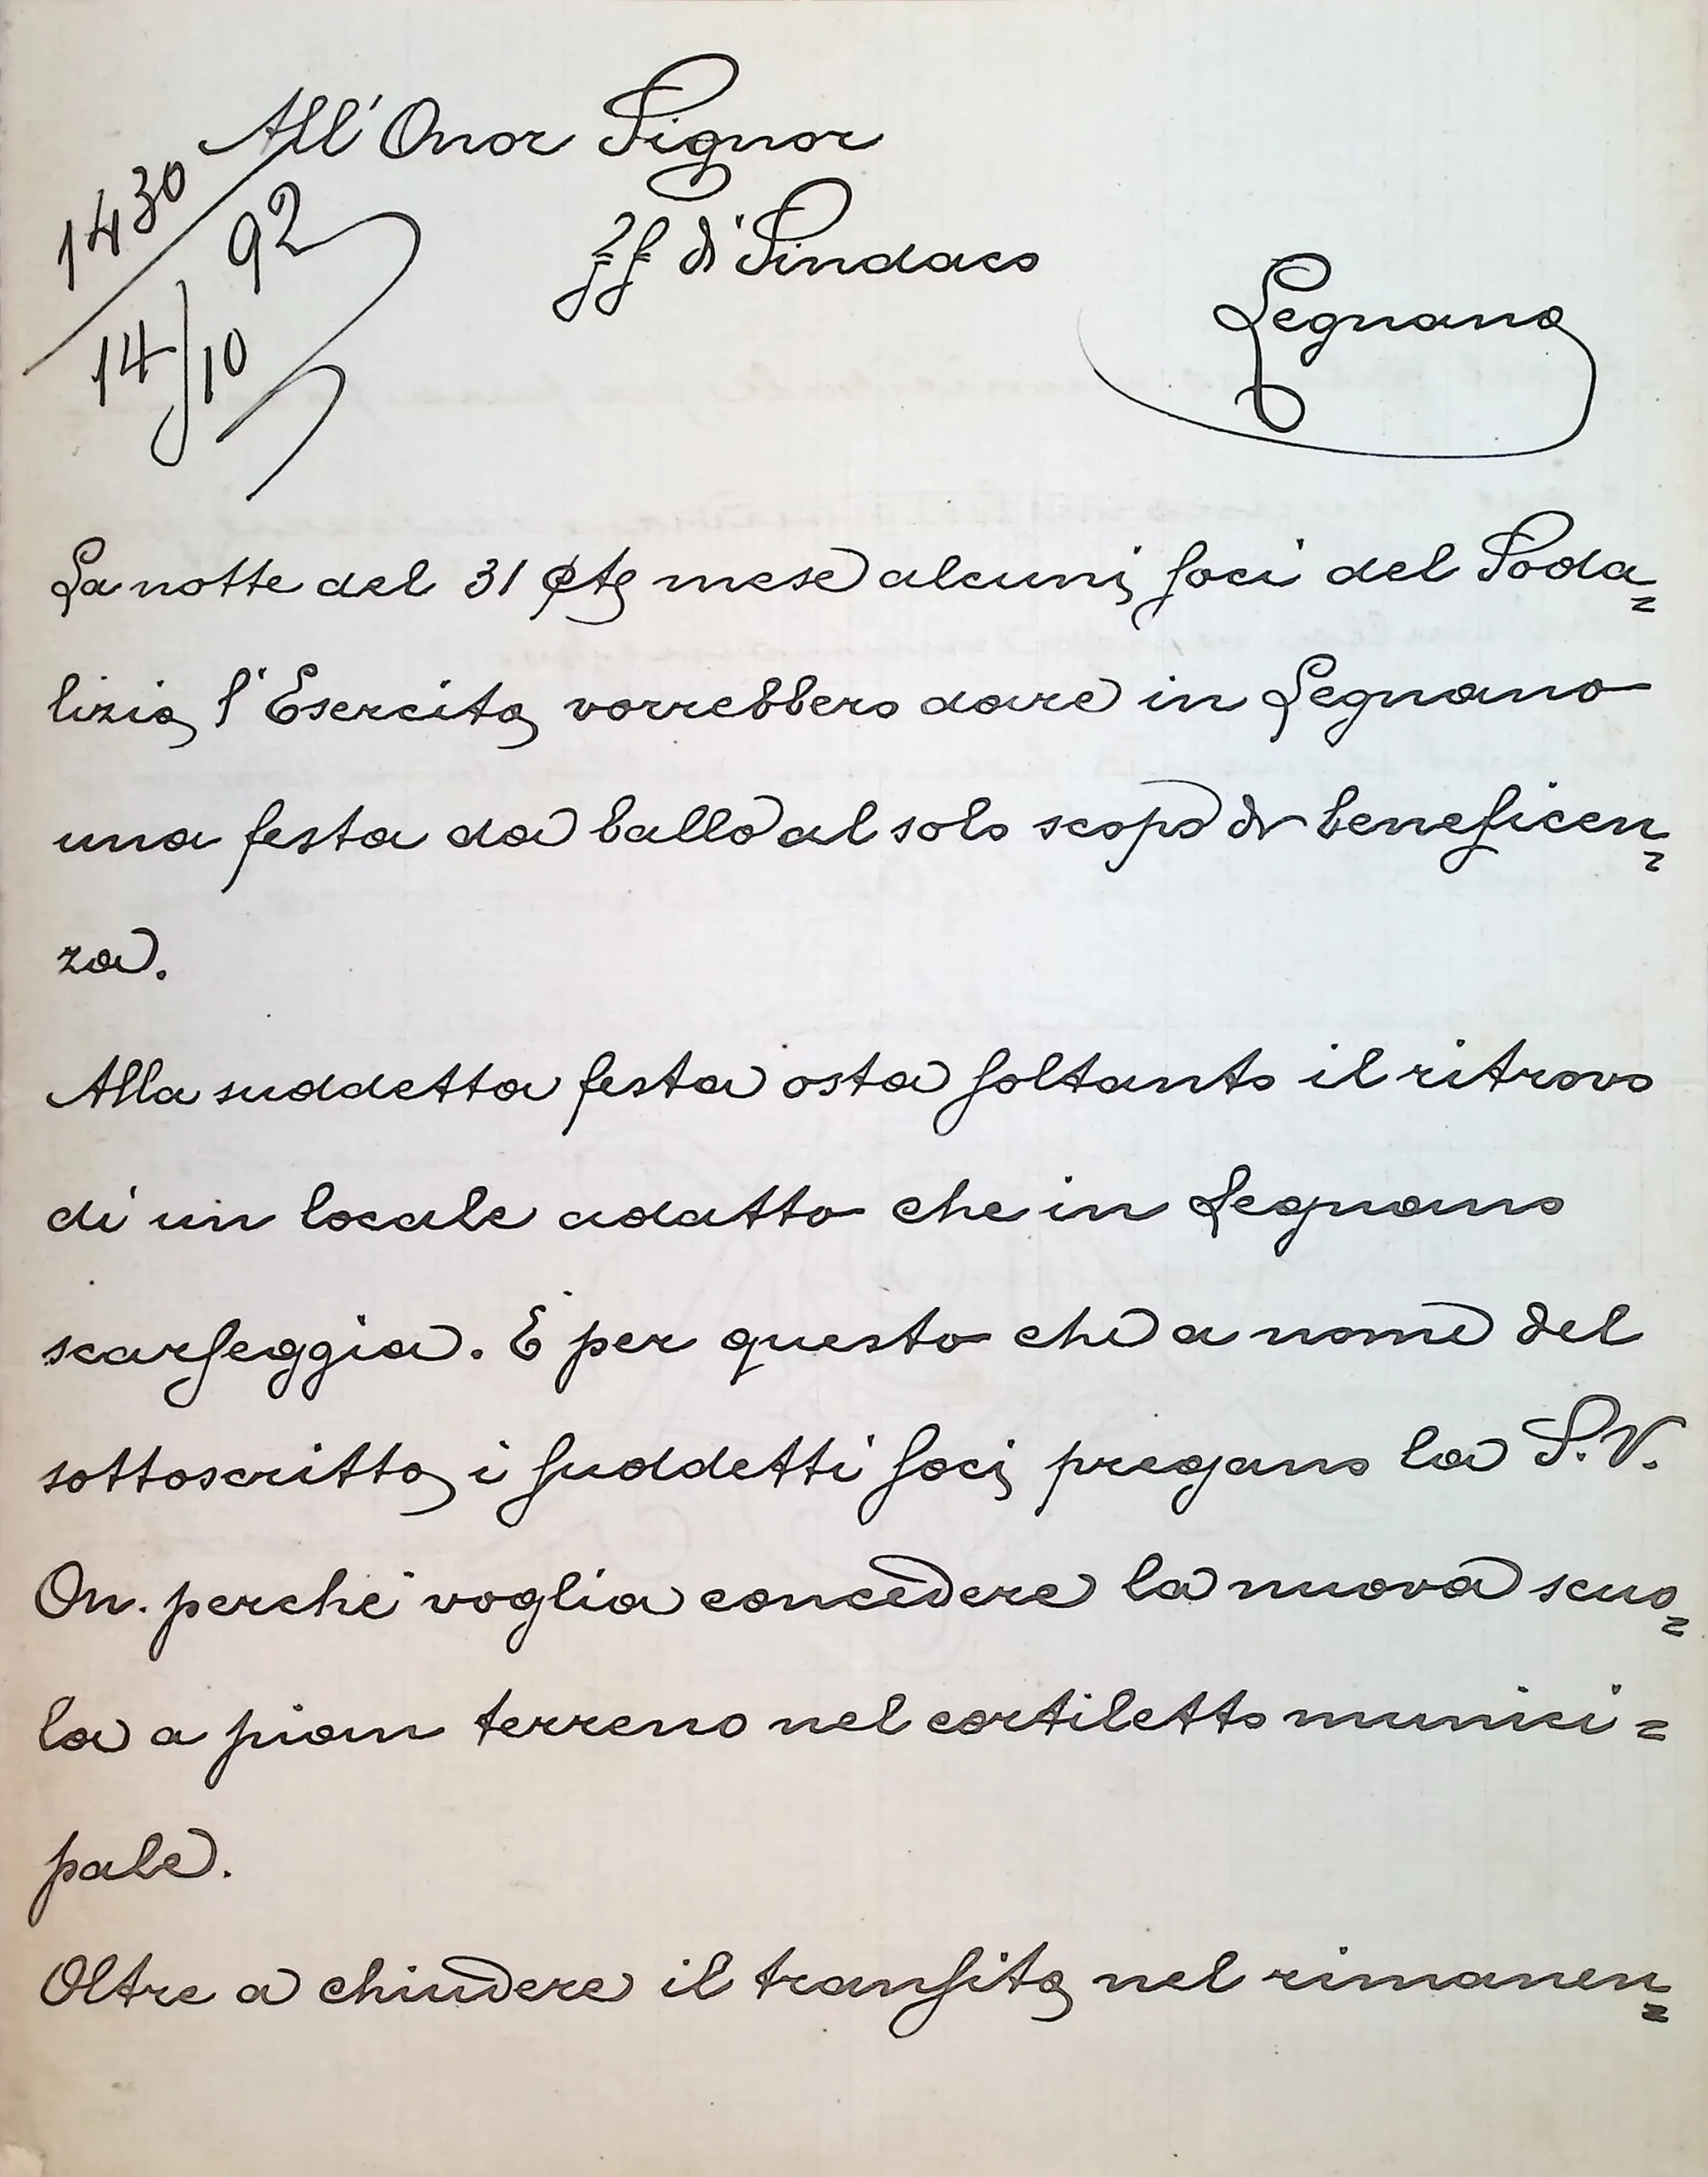 All'Onor Signor
1430
92
14/10
ff di Sindaco
Legnano
La notte del 31 mese alcuni soci del Soda=
lizio l'Esercito vorrebbero dare in Legnano
una festa da ballo al solo scopo di beneficen=
za.
Alla suddetta festa osta soltanto il ritrovo
di un locale adatto che in Legnano
scarseggia. E per questo che a nome del
sottoscritto i suddetti soci pregano la S.V.
On. perchè voglia concedere la nuova scuo=
la a pian terreno nel cortiletto munici=
pale.
Oltre a chiudere il transito nel rimanen=